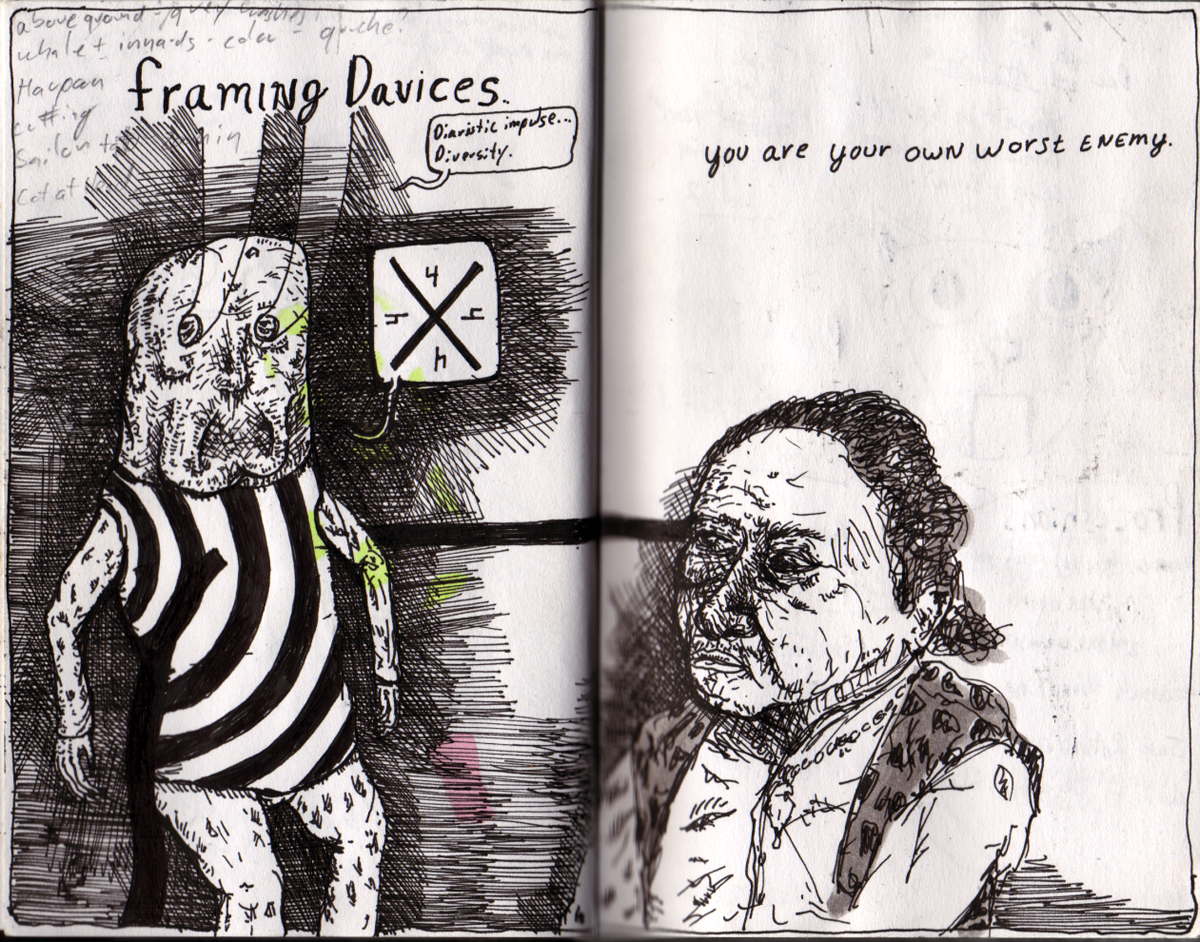 above ground
whale + innards - color - gouche?
Harpoon
cutting
framing Davices.
Diaristic impulse...
Diversity.
4
4 4
4
you are your own worst ENEMY.